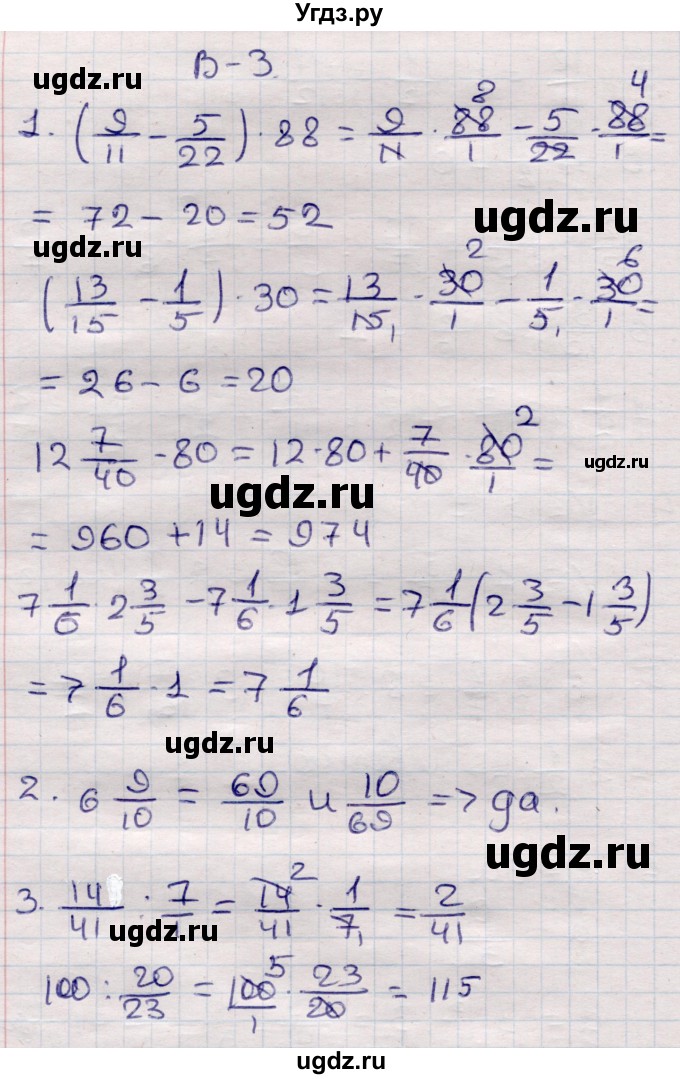 Угдз.ру
ugdz.ru
В-3
1. (9/11 - 5/22) · 88 = 9/11 · 88/1 8 - 5/22 · 88/1 4 =
= 72 - 20 = 52
ugdz.ru
ugdz.ru
(13/15 - 1/5) · 30 = 13/15 1 · 30/1 2 - 1/5 1 · 30/1 6 =
= 26 - 6 = 20
12 7/40 · 80 = 12 · 80 + 7/40 · 80/1 2 =
ugdz.ru
ugdz.ru
= 960 + 14 = 974
7 1/6 · 2 3/5 - 7 1/6 · 1 3/5 = 7 1/6 (2 3/5 - 1 3/5)
= 7 1/6 · 1 = 7 1/6
ugdz.ru
2. 6 9/10 = 69/10 и 10/69 => да.
ugdz.ru
3. 14/41 : 7/1 = 14/41 2 · 1/7 1 = 2/41
ugdz.ru
100 : 20/23 = 100/1 5 · 23/20 = 115
ugdz.ru